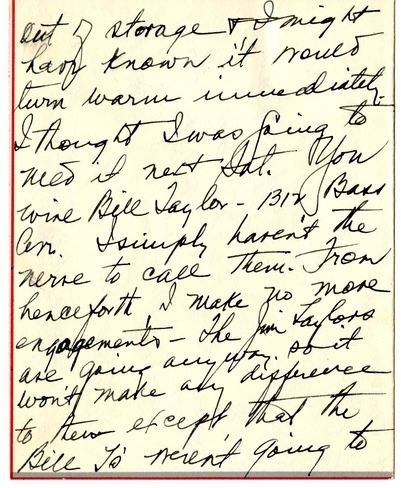 out of storage & I might
have known it would
turn warm immediately.
I thought I was going to
need it next Sat. You
wire Bill Taylor - 1312 Bass
Ave. I simply haven't the
nerve to call them. From
henceforth, I make no more
engagements - The Jim Taylors
are going anyway, so it
won't make any difference
to them except that the
Bill T's weren't going to